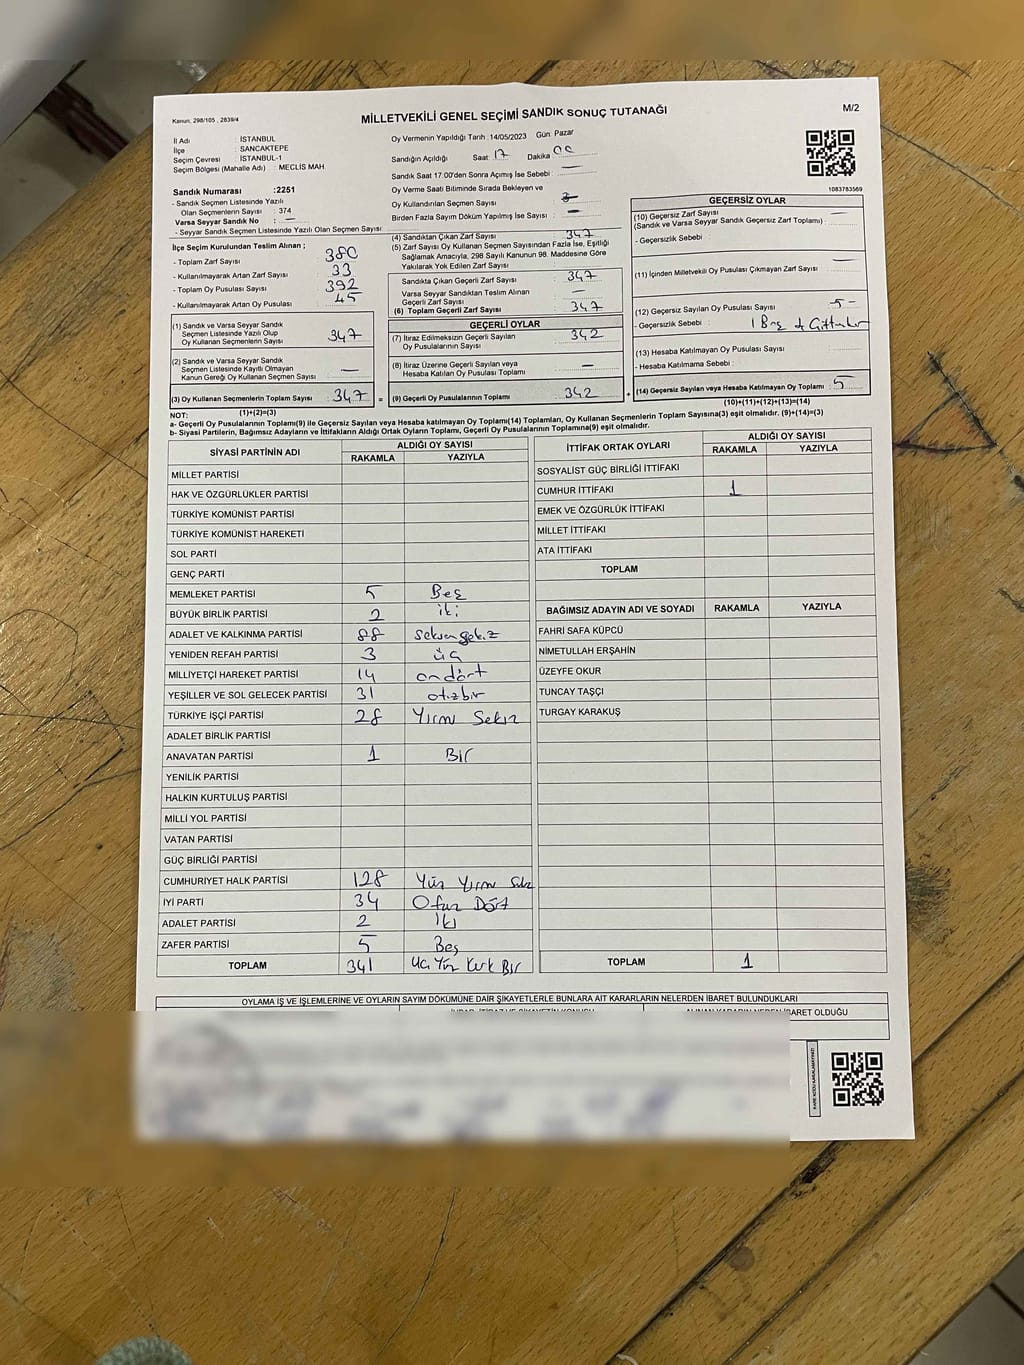 Kanun, 298/105 , 2839/4
MİLLETVEKİLİ GENEL SEÇİMİ SANDIK SONUÇ TUTANAĞI
M/2
İl Adı : İSTANBUL
İlçe : SANCAKTEPE
Seçim Çevresi : İSTANBUL-1
Seçim Bölgesi (Mahalle Adı) : MECLİS MAH
Sandık Numarası :2251
- Sandık Seçmen Listesinde Yazılı
Olan Seçmenlerin Sayısı : 374
Varsa Seyyar Sandık No : —
- Seyyar Sandık Seçmen Listesinde Yazılı Olan Seçmen Sayısı
Oy Vermenin Yapıldığı Tarih : 14/05/2023 Gün: Pazar
Sandığın Açıldığı Saat : 17 Dakika : 00
Sandık Saat 17.00'den Sonra Açımış İse Sebebi : —
Oy Verme Saati Bitiminde Sırada Bekleyen ve
Oy Kullandırılan Seçmen Sayısı :
Birden Fazla Sayım Döküm Yapılmış İse Sayısı : —
1083783569
İlçe Seçim Kurulundan Teslim Alınan ;
- Toplam Zarf Sayısı : 380
- Kullanılmayarak Artan Zarf Sayısı : 33
- Toplam Oy Pusulası Sayısı : 392
- Kullanılmayarak Artan Oy Pusulası : 45
(1) Sandık ve Varsa Seyyar Sandık
Seçmen Listesinde Yazılı Olup
Oy Kullanan Seçmenlerin Sayısı : 347
(2) Sandık ve Varsa Seyyar Sandık
Seçmen Listesinde Kayıtlı Olmayan
Kanun Gereği Oy Kullanan Seçmen Sayısı : —
(3) Oy Kullanan Seçmenlerin Toplam Sayısı : 347
(1)+(2)=(3)
(4) Sandıktan Çıkan Zarf Sayısı : 347
(5) Zarf Sayısı Oy Kullanan Seçmen Sayısından Fazla İse, Eşitliği
Sağlamak Amacıyla, 298 Sayılı Kanunun 98. Maddesine Göre
Yakılarak Yok Edilen Zarf Sayısı :
Sandıkta Çıkan Geçerli Zarf Sayısı : 347
Varsa Seyyar Sandıktan Teslim Alınan
Geçerli Zarf Sayısı : —
(6) Toplam Geçerli Zarf Sayısı : 347
GEÇERLİ OYLAR
(7) İtiraz Edilmeksizin Geçerli Sayılan
Oy Pusulalarının Sayısı : 342
(8) İtiraz Üzerine Geçerli Sayılan veya
Hesaba Katılan Oy Pusulası Toplamı : —
= (9) Geçerli Oy Pusulalarının Toplamı : 342
GEÇERSİZ OYLAR
(10) Geçersiz Zarf Sayısı : —
(Sandık ve Varsa Seyyar Sandık Geçersiz Zarf Toplamı) :
- Geçersizlik Sebebi :
(11) İçinden Milletvekili Oy Pusulası Çıkmayan Zarf Sayısı : —
(12) Geçersiz Sayılan Oy Pusulası Sayısı : -5-
- Geçersizlik Sebebi :
(13) Hesaba Katılmayan Oy Pusulası Sayısı : —
- Hesaba Katılmama Sebebi :
+ (14) Geçersiz Sayılan veya Hesaba Katılmayan Oy Toplamı : 5
(10)+(11)+(12)+(13)=(14)
NOT:
a- Geçerli Oy Pusulalarının Toplamı(9) ile Geçersiz Sayılan veya Hesaba katılmayan Oy Toplamı(14) Toplamları, Oy Kullanan Seçmenlerin Toplam Sayısına(3) eşit olmalıdır. (9)+(14)=(3)
b- Siyasi Partilerin, Bağımsız Adayların ve İttifakların Aldığı Ortak Oyların Toplamı, Geçerli Oy Pusulalarının Toplamına(9) eşit olmalıdır.
SİYASİ PARTİNİN ADI ALDIĞI OY SAYISI
RAKAMLA YAZIYLA
MİLLET PARTİSİ
HAK VE ÖZGÜRLÜKLER PARTİSİ
TÜRKİYE KOMÜNİST PARTİSİ
TÜRKİYE KOMÜNİST HAREKETİ
SOL PARTİ
GENÇ PARTİ
MEMLEKET PARTİSİ 5 Beş
BÜYÜK BİRLİK PARTİSİ 2 iki
ADALET VE KALKINMA PARTİSİ 88 seksensekiz
YENİDEN REFAH PARTİSİ 3 üç
MİLLİYETÇİ HAREKET PARTİSİ 14 ondört
YEŞİLLER VE SOL GELECEK PARTİSİ 31 otuzbir
TÜRKİYE İŞÇİ PARTİSİ 28 Yirmi Sekiz
ADALET BİRLİK PARTİSİ
ANAVATAN PARTİSİ 1 Bir
YENİLİK PARTİSİ
HALKIN KURTULUŞ PARTİSİ
MİLLİ YOL PARTİSİ
VATAN PARTİSİ
GÜÇ BİRLİĞİ PARTİSİ
CUMHURİYET HALK PARTİSİ 128 Yüz Yirmi Sekiz
İYİ PARTİ 34 Otuz Dört
ADALET PARTİSİ 2 İki
ZAFER PARTİSİ 5 Beş
TOPLAM 341 Üç Yüz Kırk Bir
İTTİFAK ORTAK OYLARI ALDIĞI OY SAYISI
RAKAMLA YAZIYLA
SOSYALİST GÜÇ BİRLİĞİ İTTİFAKI
CUMHUR İTTİFAKI 1
EMEK VE ÖZGÜRLÜK İTTİFAKI
MİLLET İTTİFAKI
ATA İTTİFAKI
TOPLAM
BAĞIMSIZ ADAYIN ADI VE SOYADI RAKAMLA YAZIYLA
FAHRİ SAFA KÜPCÜ
NİMETULLAH ERŞAHİN
ÜZEYFE OKUR
TUNCAY TAŞÇI
TURGAY KARAKUŞ
TOPLAM 1
OYLAMA İŞ VE İŞLEMLERİNE VE OYLARIN SAYIM DÖKÜMÜNE DAİR ŞİKAYETLERLE BUNLARA AİT KARARLARIN NELERDEN İBARET BULUNDUKLARI